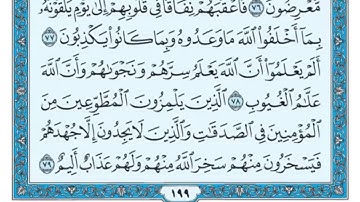 مُّعْرِضُونَ ٧٦ فَأَعْقَبَهُمْ نِفَاقًا فِي قُلُوبِهِمْ إِلَىٰ يَوْمِ يَلْقَوْنَهُۥ
بِمَآ أَخْلَفُوا۟ ٱللَّهَ مَا وَعَدُوهُ وَبِمَا كَانُوا۟ يَكْذِبُونَ ٧٧
أَلَمْ يَعْلَمُوٓا۟ أَنَّ ٱللَّهَ يَعْلَمُ سِرَّهُمْ وَنَجْوَىٰهُمْ وَأَنَّ ٱللَّهَ
عَلَّـٰمُ ٱلْغُيُوبِ ٧٨ ٱلَّذِينَ يَلْمِزُونَ ٱلْمُطَّوِّعِينَ مِنَ
ٱلْمُؤْمِنِينَ فِي ٱلصَّدَقَـٰتِ وَٱلَّذِينَ لَا يَجِدُونَ إِلَّا جُهْدَهُمْ
فَيَسْخَرُونَ مِنْهُمْ سَخِرَ ٱللَّهُ مِنْهُمْ وَلَهُمْ عَذَابٌ أَلِيمٌ ٧٩
١٩٩